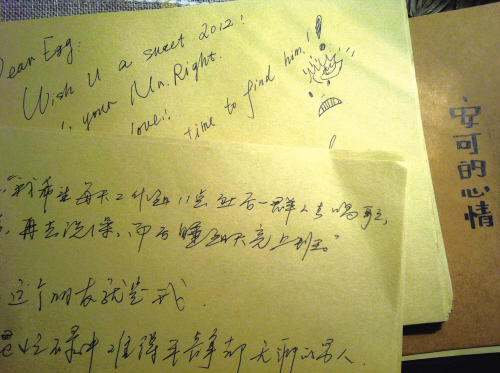 Dear Egg:
Wish U a sweet 2012!
your Mr. Right.
love!! time to find him!
"我希望每天工作到11点然后一群人去唱歌,
再去洗澡、而后睡到天亮上班。"
这个朋友就是我.
忙碌中难得 却无聊的男人.
安可的心情